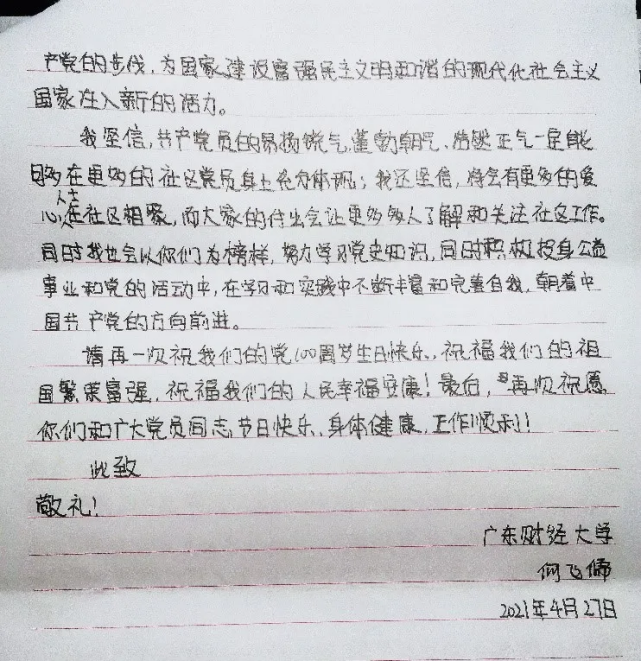 产党的步伐，为国家建设富强民主文明和谐的现代化社会主义
国家注入新的活力。
我坚信，共产党员的昂扬锐气、蓬勃朝气、浩然正气一定能
够在更多的社区党员身上充分体现；我还坚信，将会有更多的爱
心人士在社区相聚，而大家的付出会让更多人了解和关注社区工作。
同时我也会以你们为榜样，努力学习党史知识，同时积极投身公益
事业和党的活动中，在学习和实践中不断丰富和完善自我，朝着中
国共产党的方向前进。
请再一次祝我们的党100周岁生日快乐，祝福我们的祖
国繁荣富强，祝福我们的人民幸福安康！最后，再次祝愿
你们和广大党员同志节日快乐、身体健康，工作顺利！
此致
敬礼！
广东财经大学
何飞儒
2021年4月27日